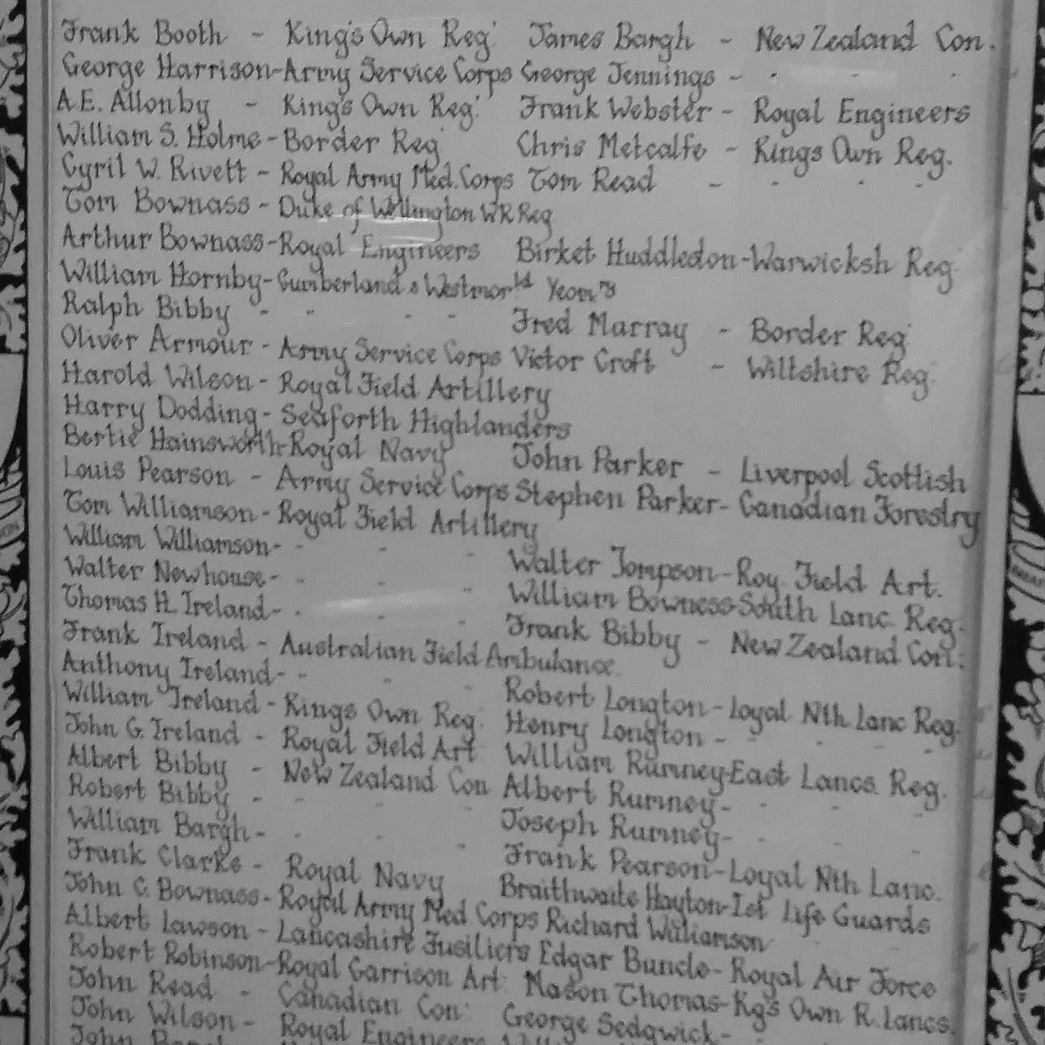 Frank Booth - King's Own Reg' James Bargh - New Zealand Con.
George Harrison - Army Service Corps George Jennings - " " "
A.E. Allonby - King's Own Reg' Frank Webster - Royal Engineers
William S. Holme - Border Reg' Chris Metcalfe - Kings Own Reg.
Cyril W. Rivett - Royal Army Med. Corps Tom Read - " " "
Tom Bownass - Duke of Wellington W R Reg
Arthur Bownass - Royal Engineers Birket Huddleston - Warwicksh Reg
William Hornby - Cumberland & Westmorld Yeomry
Ralph Bibby - " " " Fred Marray - Border Reg'
Oliver Armour - Army Service Corps Victor Croft - Wiltshire Reg'
Harold Wilson - Royal Field Artillery
Harry Dodding - Seaforth Highlanders
Bertie Hainsworth - Royal Navy John Parker - Liverpool Scottish
Louis Pearson - Army Service Corps Stephen Parker - Canadian Forestry
Tom Williamson - Royal Field Artillery
William Williamson - " " " Walter Tompson - Roy. Field Art.
Walter Newhouse - " " " William Bowness - South Lanc. Reg.
Thomas H. Ireland - " " " Frank Bibby - New Zealand Con.
Frank Ireland - Australian Field Ambulance
Anthony Ireland - " " " Robert Longton - Loyal Nth Lanc Reg.
William Ireland - Kings Own Reg. Henry Longton - " " " "
John G. Ireland - Royal Field Art William Rumney - East Lancs. Reg.
Albert Bibby - New Zealand Con Albert Rumney - " " "
Robert Bibby - " " " Joseph Rumney - " " "
William Bargh - " " " Frank Pearson - Loyal Nth Lanc.
Frank Clarke - Royal Navy Braithwaite Hayton - 1st Life Guards
John C. Bownass - Royal Army Med Corps Richard Waliamson " " "
Albert Lawson - Lancashire Fusiliers Edgar Buncle - Royal Air Force
Robert Robinson - Royal Garrison Art: Mason Thomas - Kg's Own R. Lancs.
John Read - Canadian Con: George Sedgwick -
John Wilson - Royal Engineers
John